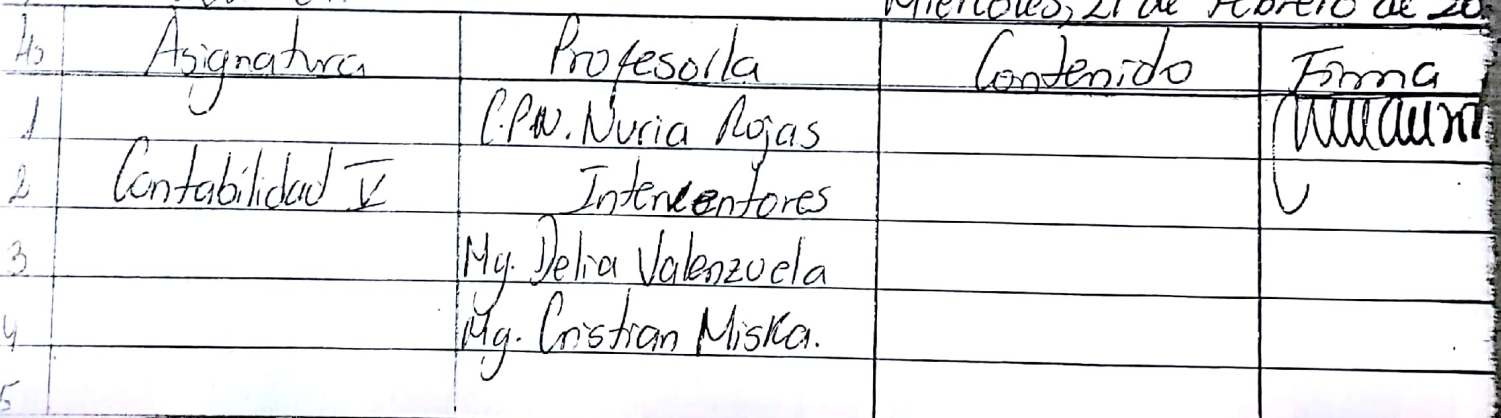 Miércoles, 21 de Febrero de 20
Hs Asignatura Profesor/a Contenido Firma
1 C.P.N. Nuria Rojas
2 Contabilidad V Interventores
3 Mg. Delia Valenzuela
4 Mg. Cristian Miska.
5